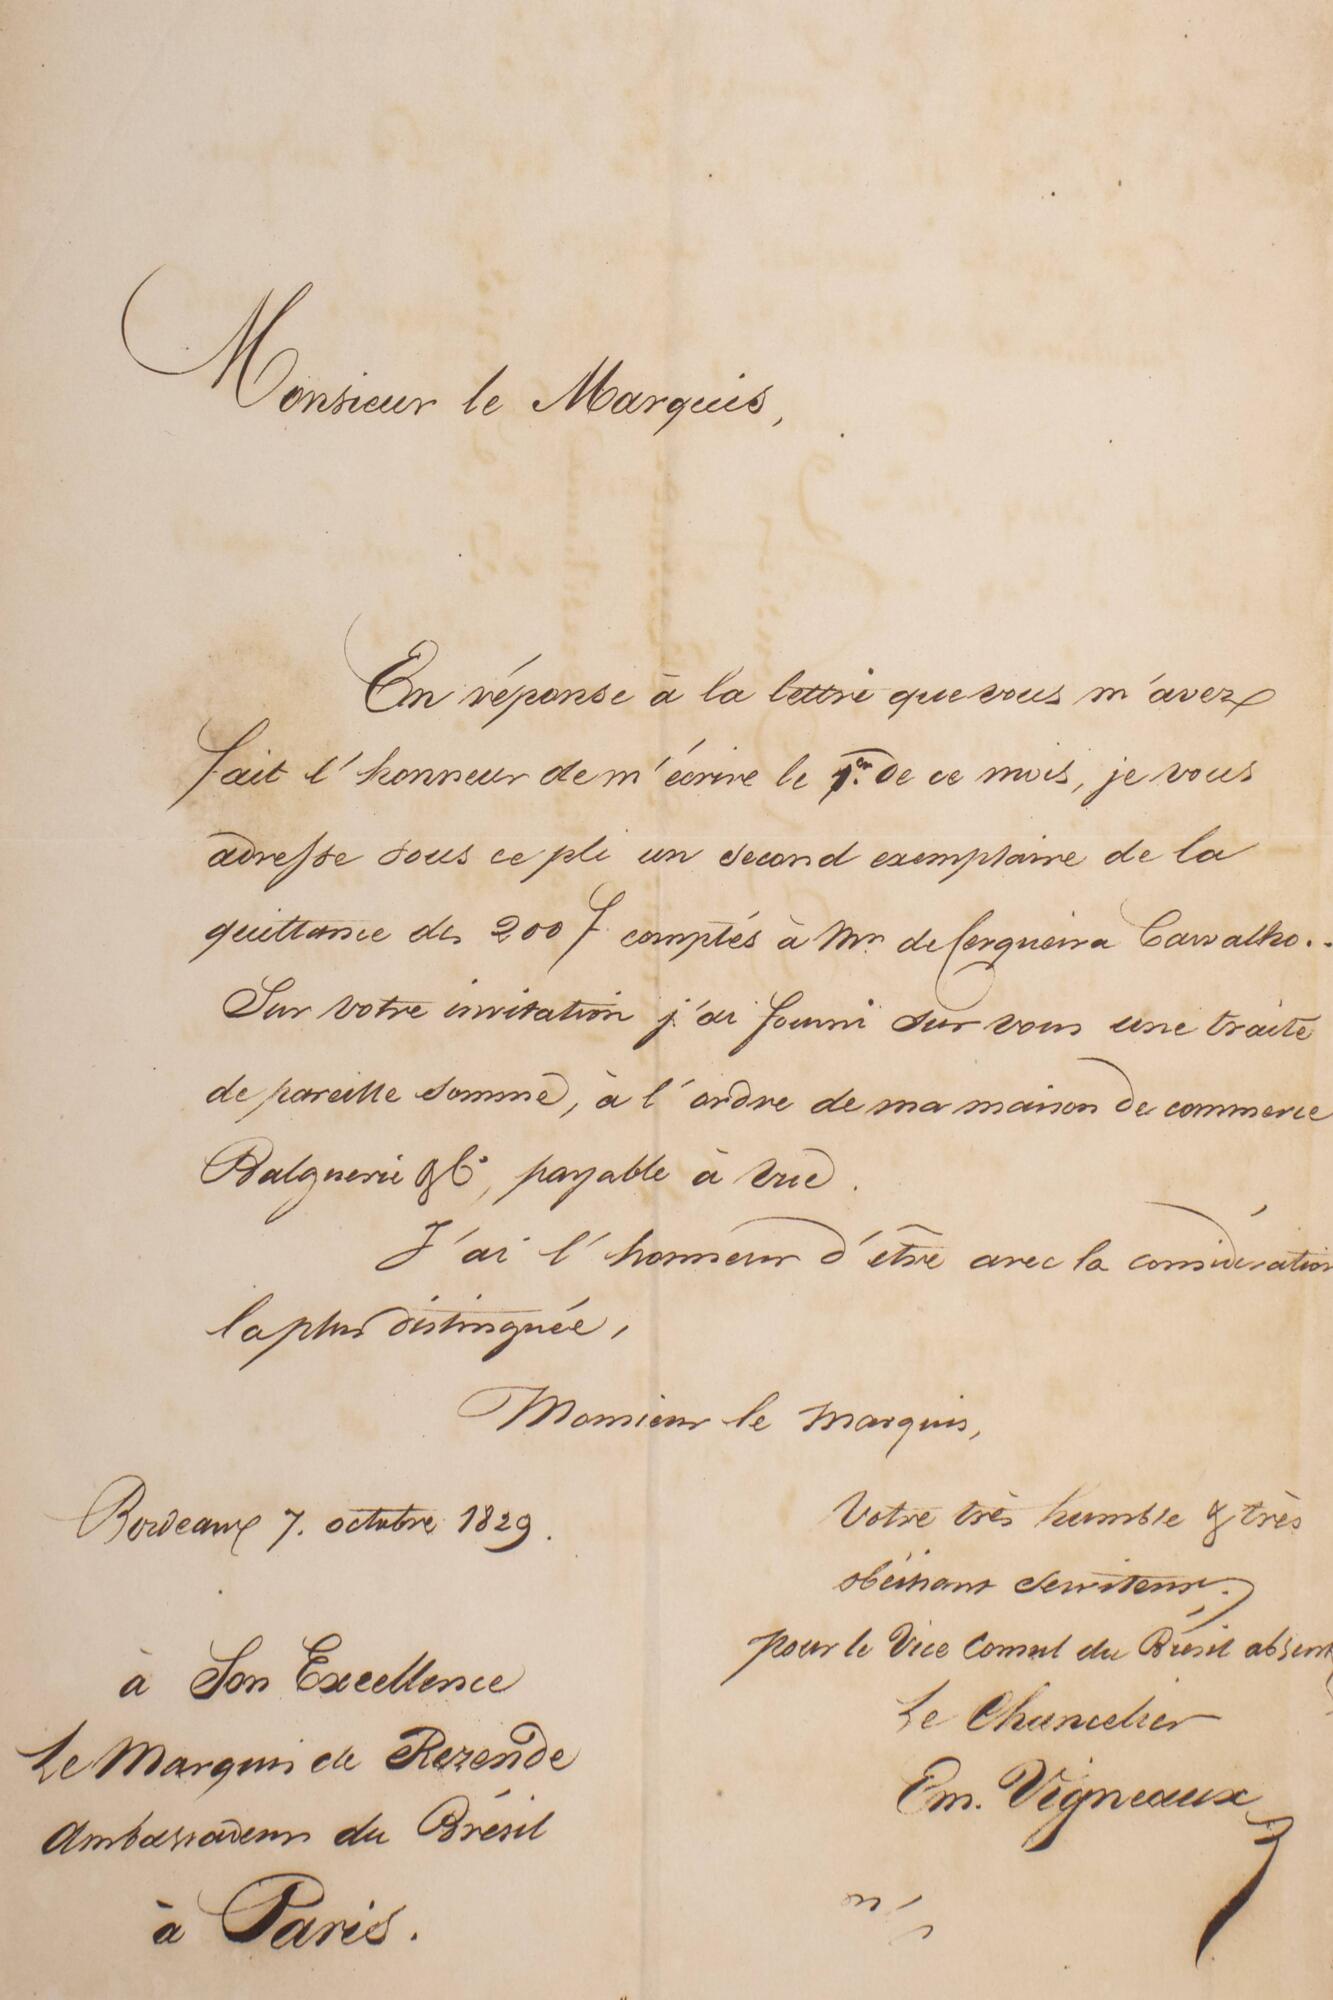 Monsieur le Marquis,
En réponse à la lettre que vous m'avez
fait l'honneur de m'écrire le 1er. de ce mois, je vous
adresse sous ce pli un second exemplaire de la
quittance des 200 f comptés à Mr. de Cerqueira Carvalho..
Sur votre invitation j'ai fourni sur vous une traite
de pareille somme, à l'ordre de ma maison de commerce
Balguerie & Co, payable à vue.
J'ai l'honneur d'être avec la considération
la plus distinguée,
Monsieur le Marquis,
Bordeaux 7. octobre 1829.
Votre très humble & très
obéissant serviteur.
pour le Vice Consul du Brésil absent
Le Chancelier
Em. Vigneaux
à Son Excellence
Le Marquis de Rezende
Ambassadeur du Brésil
à Paris.